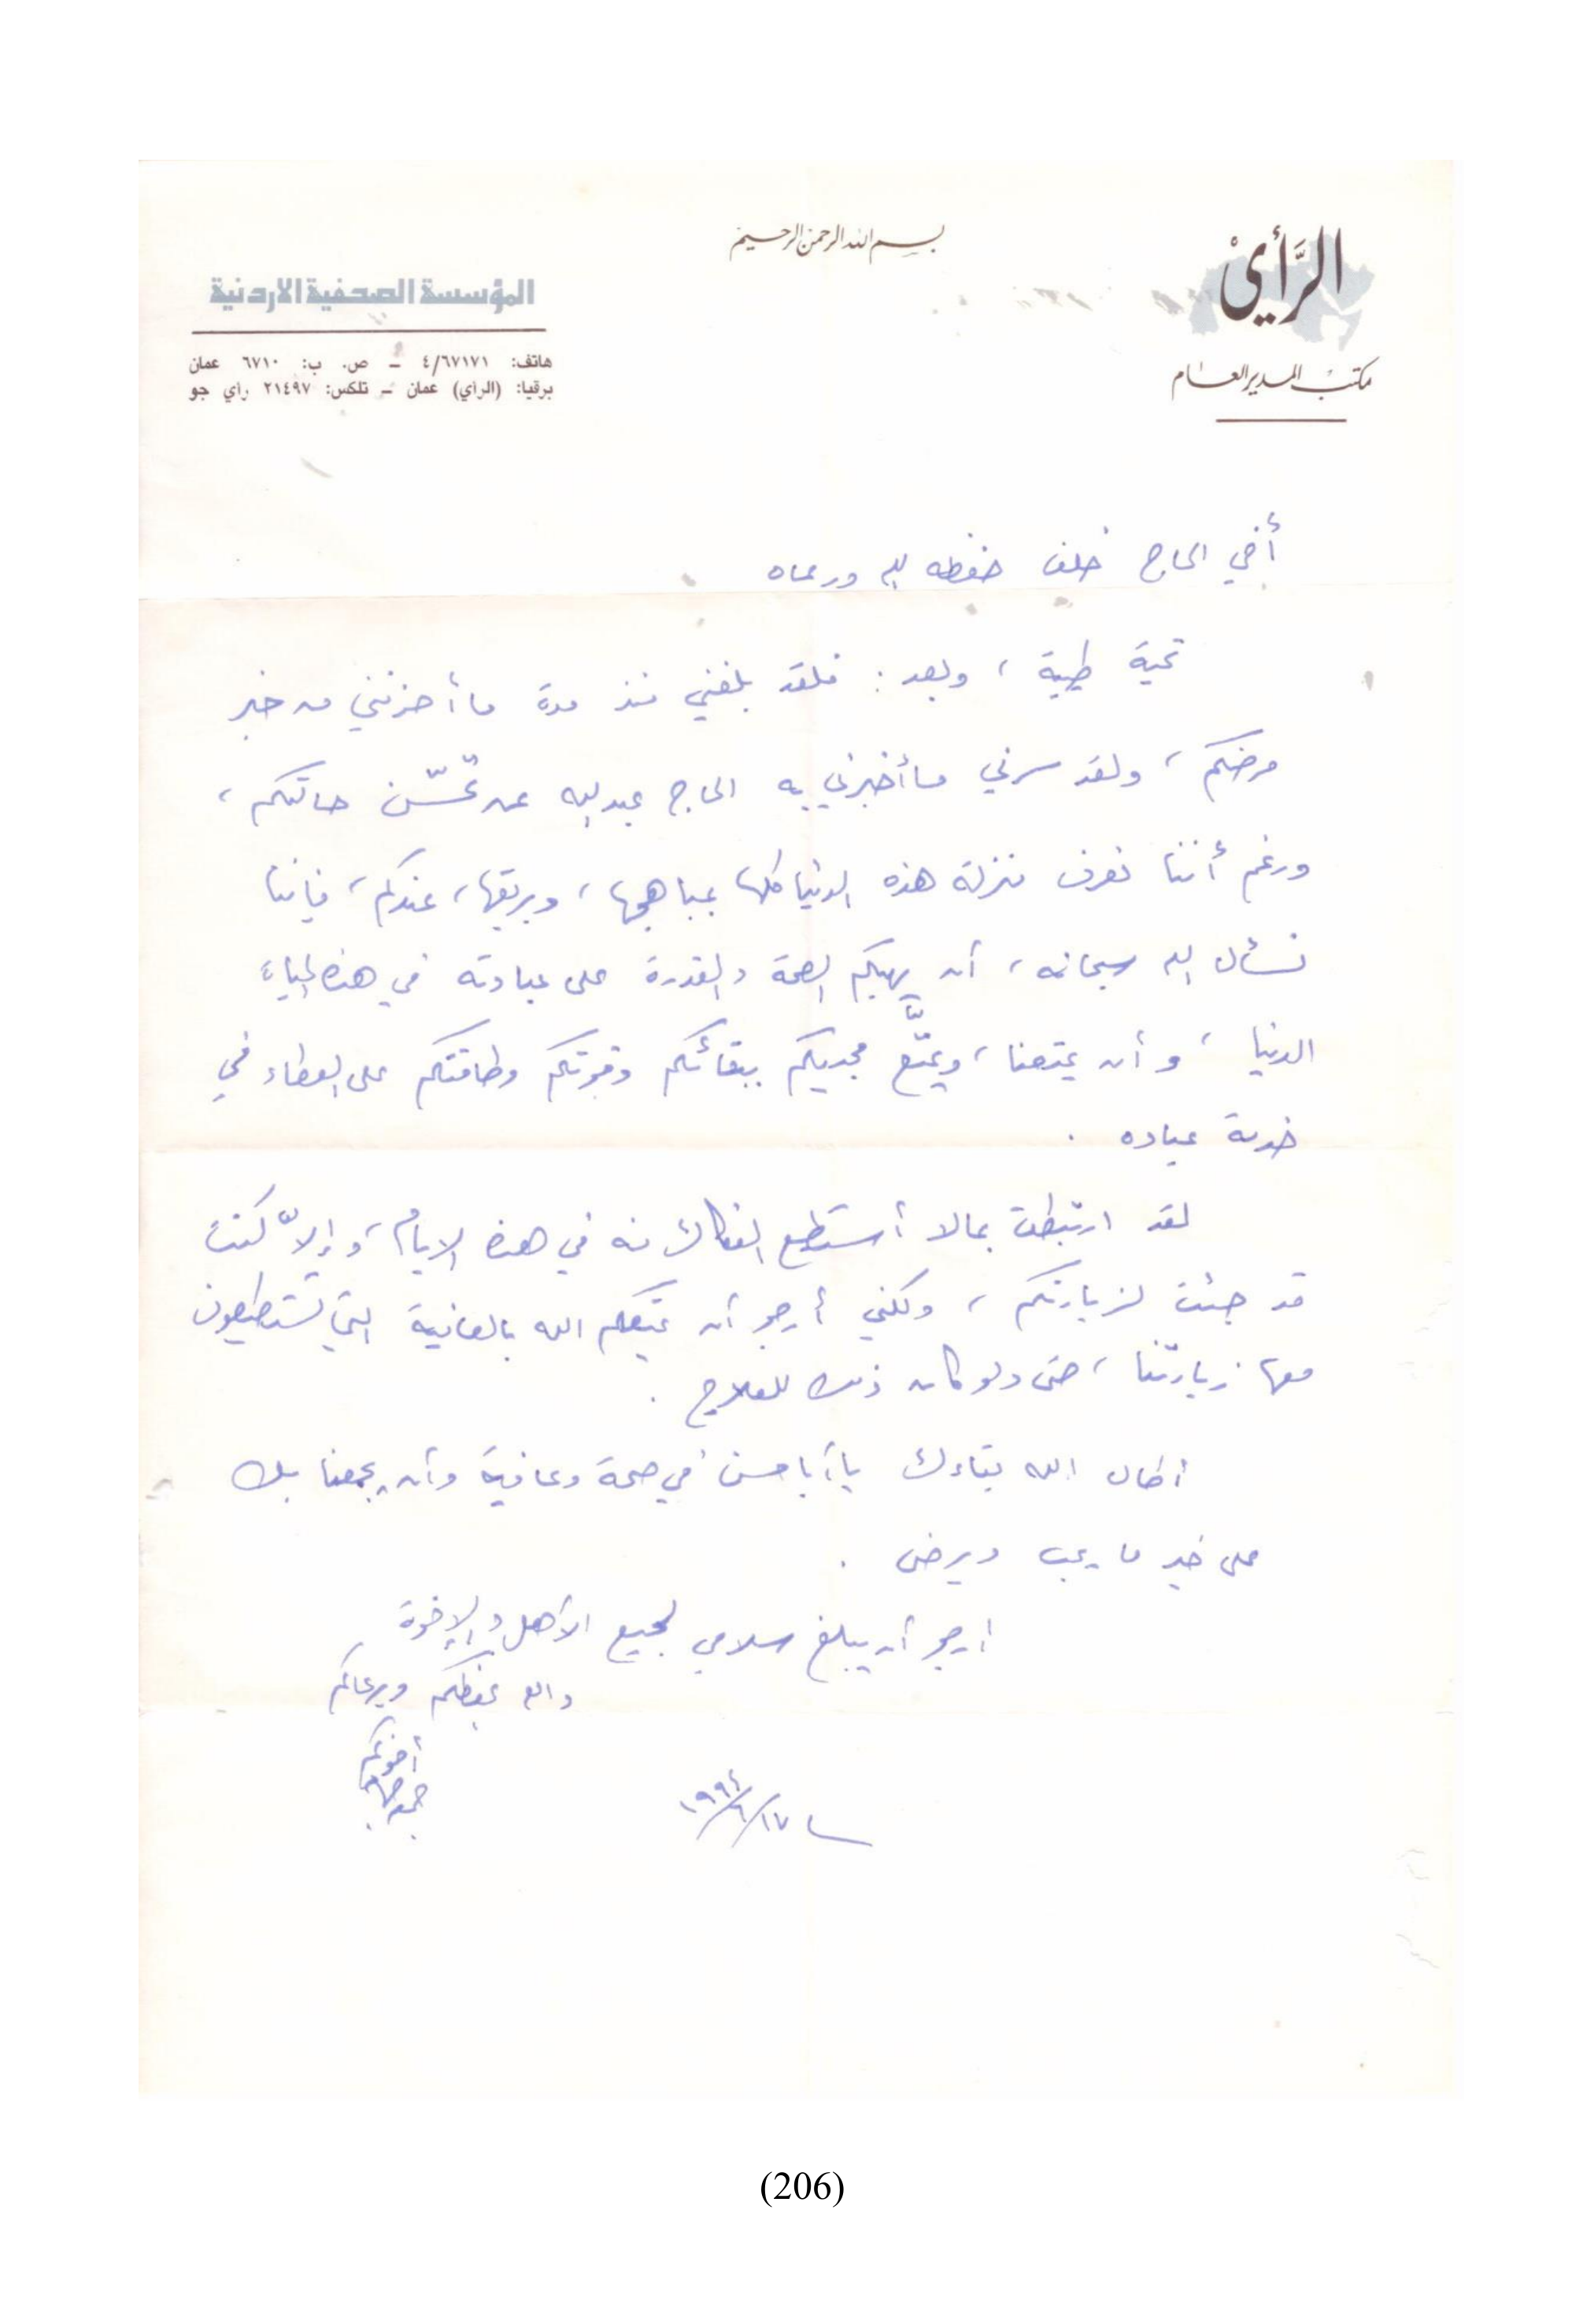 بسم الله الرحمن الرحيم
الرَّأي
مكتب المدير العام
المؤسسة الصحفية الاردنية
هاتف: ٤/٦٧١٧١ – ص. ب: ٦٧١٠ عمان
برقيا: (الرأي) عمان – تلكس: ٢١٤٩٧ رأي جو
أخي الحاج خلف حفظه الله ورعاه
تحية طيبة، وبعد: فلقد بلغني منذ مدة ما أحزنني من خبر
مرضكم، ولقد سرني ما أخبرني به الحاج عبد الله عن تحسّن حالتكم،
ورغم أننا نعرف منزلة هذه الدنيا كلها بمباهجها، وبريقها، عندكم، فإننا
نسأل الله سبحانه، أن يهبكم الصحة والقدرة على عبادته في هذه الحياة
الدنيا، وأن يمتعنا، ويمتّع محبيكم ببقائكم وقوتكم وطاقتكم على العطاء في
خدمة عباده.
لقد ارتبطت بما لا أستطيع الفكاك منه في هذه الايام، وإلاّ كنت
قد جئت لزيارتكم، ولكني أرجو أن يمتعكم الله بالعافية التي تستطيعون
معها زيارتنا، حتى ولو كان ذلك للعلاج.
أطال الله بقاءك يا أبا حسن في صحة وعافية وأن يجمعنا بك
على خير ما يحب ويرضى.
أرجو أن يبلغ سلامي لجميع الأهل والإخوة
والله يحفظكم ويرعاكم
أخوكم
جمعة
١٩٩٤/٦/١٧
(206)